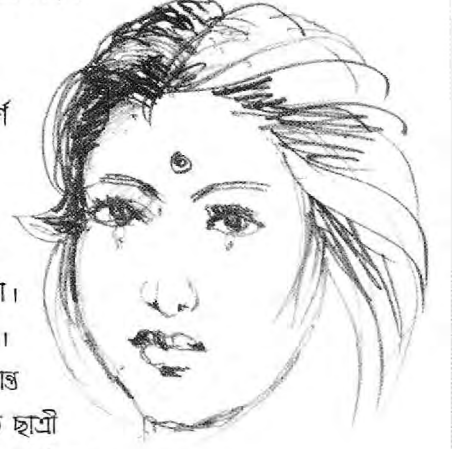 র্ণ
া।
।
ান্ত
ছাত্রী